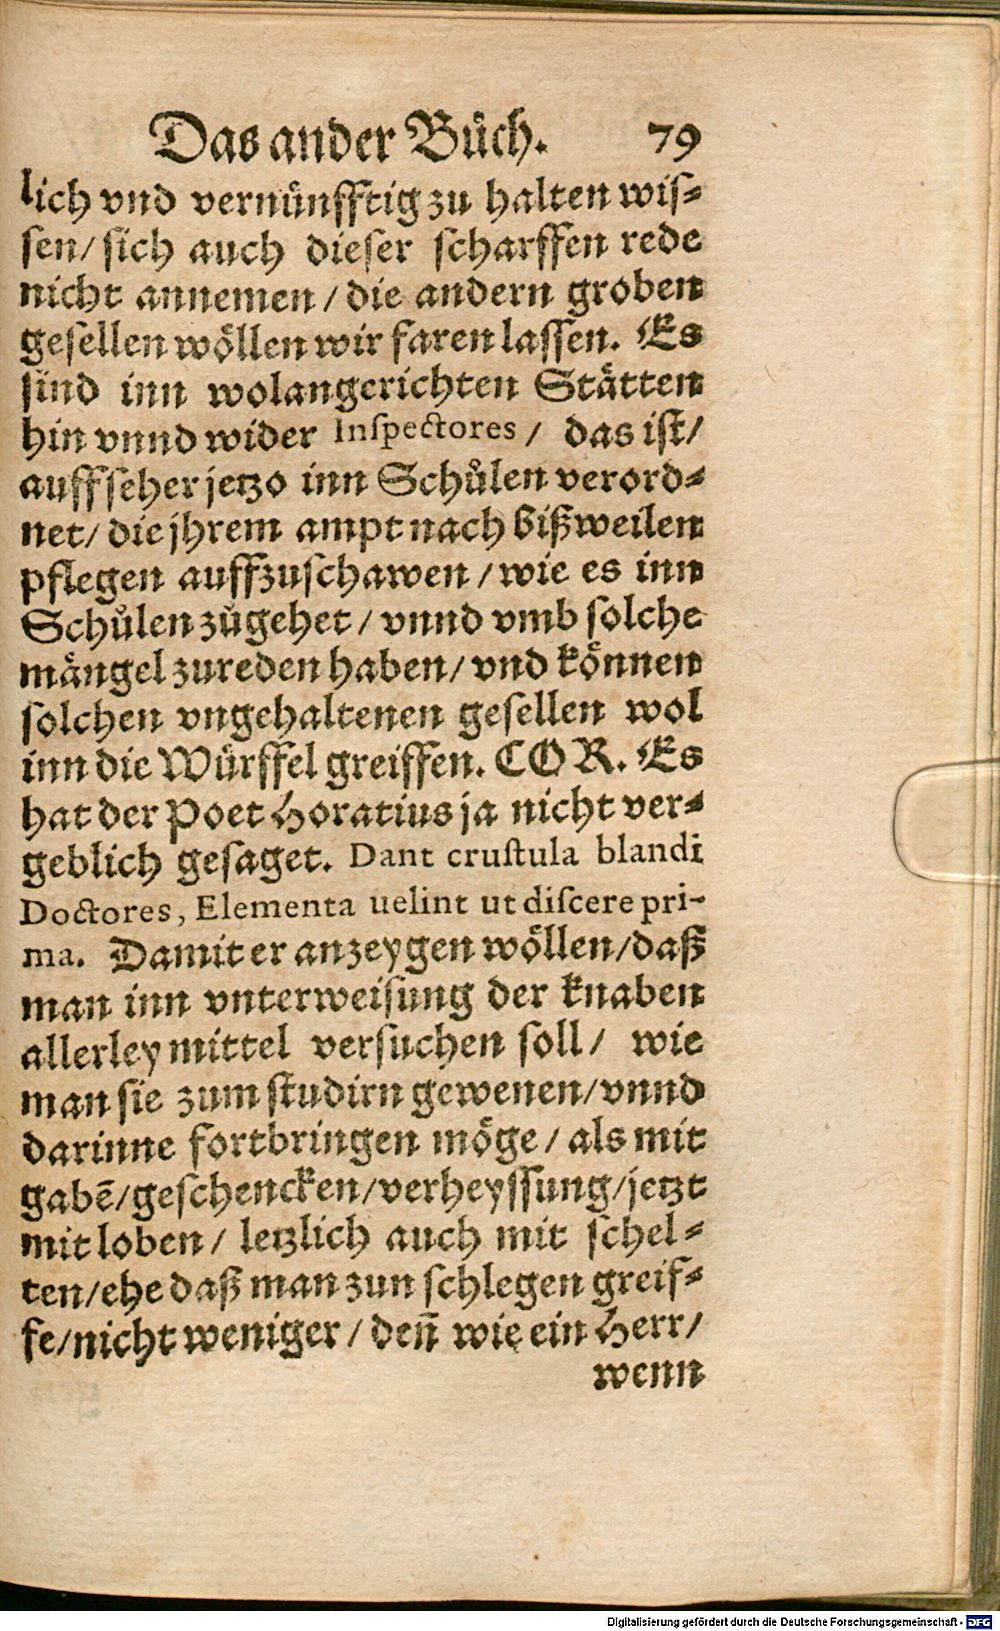 Das ander Bůch. 79
lich vnd vernünfftig zu halten wis⸗
sen/ sich auch dieser scharffen rede
nicht annemen / die andern groben
gesellen wöllen wir faren lassen. Es
sind inn wolangerichten Stätten
hin vnnd wider Inspectores / das ist/
auffseher jetzo inn Schůlen verord⸗
net/ die jhrem ampt nach bißweilen
pflegen auffzuschawen / wie es inn
Schůlen zůgehet / vnnd vmb solche
mängel zureden haben/ vnd können
solchen vngehaltenen gesellen wol
inn die Würffel greiffen. COR. Es
hat der Poet Horatius ja nicht ver⸗
geblich gesaget. Dant crustula blandi
Doctores, Elementa uelint ut discere pri-
ma. Damit er anzeygen wöllen/daß
man inn vnterweisung der knaben
allerley mittel versuchen soll/ wie
man sie zum studirn gewenen/vnnd
darinne fortbringen möge / als mit
gabē/geschencken/verheyssung/jetzt
mit loben / letzlich auch mit schel⸗
ten/ehe daß man zun schlegen greif⸗
fe/nicht weniger / den̄ wie ein Herr/
wenn
Digitalisierung gefördert durch die Deutsche Forschungsgemeinschaft - DFG